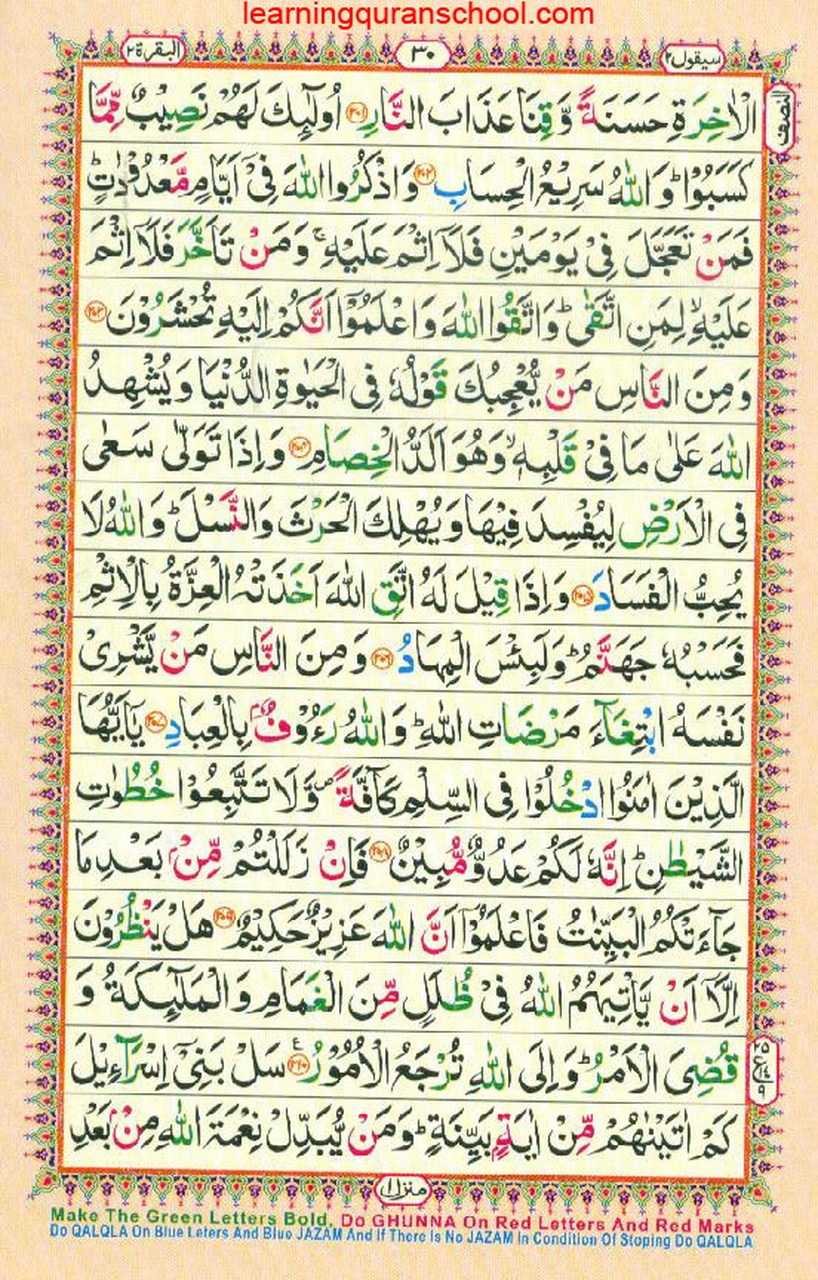 learningquranschool.com
البقرة ٢
٣٠
سيقول ٢
النصف
الْاٰخِرَةِ حَسَنَةً وَّقِنَا عَذَابَ النَّارِ ﴿۲۰۱﴾ اُولٰٓئِكَ لَهُمْ نَصِيْبٌ مِّمَّا
كَسَبُوْا ؕ وَاللّٰهُ سَرِيْعُ الْحِسَابِ ﴿۲۰۲﴾ وَاذْكُرُوا اللّٰهَ فِىْٓ اَيَّامٍ مَّعْدُوْدٰتٍ ؕ
فَمَنْ تَعَجَّلَ فِىْ يَوْمَيْنِ فَلَاۤ اِثْمَ عَلَيْهِ ۚ وَمَنْ تَاَخَّرَ فَلَاۤ اِثْمَ
عَلَيْهِ ۙ لِمَنِ اتَّقٰى ؕ وَاتَّقُوا اللّٰهَ وَاعْلَمُوْٓا اَنَّكُمْ اِلَيْهِ تُحْشَرُوْنَ ﴿۲۰۳﴾
وَمِنَ النَّاسِ مَنْ يُّعْجِبُكَ قَوْلُهٗ فِى الْحَيٰوةِ الدُّنْيَا وَيُشْهِدُ
اللّٰهَ عَلٰى مَا فِىْ قَلْبِهٖ ۙ وَهُوَ اَلَدُّ الْخِصَامِ ﴿۲۰۴﴾ وَاِذَا تَوَلّٰى سَعٰى
فِى الْاَرْضِ لِيُفْسِدَ فِيْهَا وَيُهْلِكَ الْحَرْثَ وَالنَّسْلَ ؕ وَاللّٰهُ لَا
يُحِبُّ الْفَسَادَ ﴿۲۰۵﴾ وَاِذَا قِيْلَ لَهُ اتَّقِ اللّٰهَ اَخَذَتْهُ الْعِزَّةُ بِالْاِثْمِ
فَحَسْبُهٗ جَهَنَّمُ ؕ وَلَبِئْسَ الْمِهَادُ ﴿۲۰۶﴾ وَمِنَ النَّاسِ مَنْ يَّشْرِىْ
نَفْسَهُ ابْتِغَآءَ مَرْضَاتِ اللّٰهِ ؕ وَاللّٰهُ رَءُوْفٌۢ بِالْعِبَادِ ﴿۲۰۷﴾ يٰٓاَيُّهَا
الَّذِيْنَ اٰمَنُوا ادْخُلُوْا فِى السِّلْمِ كَآفَّةً ۪ وَّلَا تَتَّبِعُوْا خُطُوٰتِ
الشَّيْطٰنِ ؕ اِنَّهٗ لَكُمْ عَدُوٌّ مُّبِيْنٌ ﴿۲۰۸﴾ فَاِنْ زَلَلْتُمْ مِّنْۢ بَعْدِ مَا
جَآءَتْكُمُ الْبَيِّنٰتُ فَاعْلَمُوْٓا اَنَّ اللّٰهَ عَزِيْزٌ حَكِيْمٌ ﴿۲۰۹﴾ هَلْ يَنْظُرُوْنَ
اِلَّاۤ اَنْ يَّاْتِيَهُمُ اللّٰهُ فِىْ ظُلَلٍ مِّنَ الْغَمَامِ وَالْمَلٰٓئِكَةُ وَ
قُضِىَ الْاَمْرُ ؕ وَاِلَى اللّٰهِ تُرْجَعُ الْاُمُوْرُ ﴿۲۱۰﴾ سَلْ بَنِىْٓ اِسْرَآءِيْلَ
كَمْ اٰتَيْنٰهُمْ مِّنْ اٰيَةٍۢ بَيِّنَةٍ ؕ وَمَنْ يُّبَدِّلْ نِعْمَةَ اللّٰهِ مِنْۢ بَعْدِ
منزل ١
Make The Green Letters Bold, Do GHUNNA On Red Letters And Red Marks
Do QALQLA On Blue Leters And Blue JAZAM And If There Is No JAZAM In Condition Of Stoping Do QALQLA